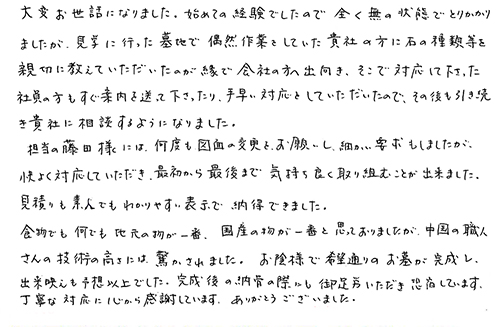 大変お世話になりました。始めての経験でしたので全く無の状態でとりかかり
ましたが、見学に行った墓地で偶然作業をしていた貴社の方に石の種類等を
親切に教えていただいたのが縁で会社の方へ出向き、そこで対応して下さった
社員の方もすぐ案内を送って下さったり、手早い対応をしていただいたので、その後も引き続
き貴社に相談するようになりました。
担当の藤田様には、何度も図面の変更を、お願いし、細かい要求もしましたが、
快よく対応していただき、最初から最後まで気持ち良く取り組むことが出来ました。
見積りも素人でもわかりやすい表示で納得できました。
食物でも何でも地元の物が一番、国産の物が一番と思っておりましたが、中国の職人
さんの技術の高さには驚かされました。お陰様で希望通りのお墓が完成し、
出来映えも予想以上でした。完成後の納骨の際にも御足労いただき恐縮しています。
丁寧な対応に心から感謝しています。ありがとうございました。